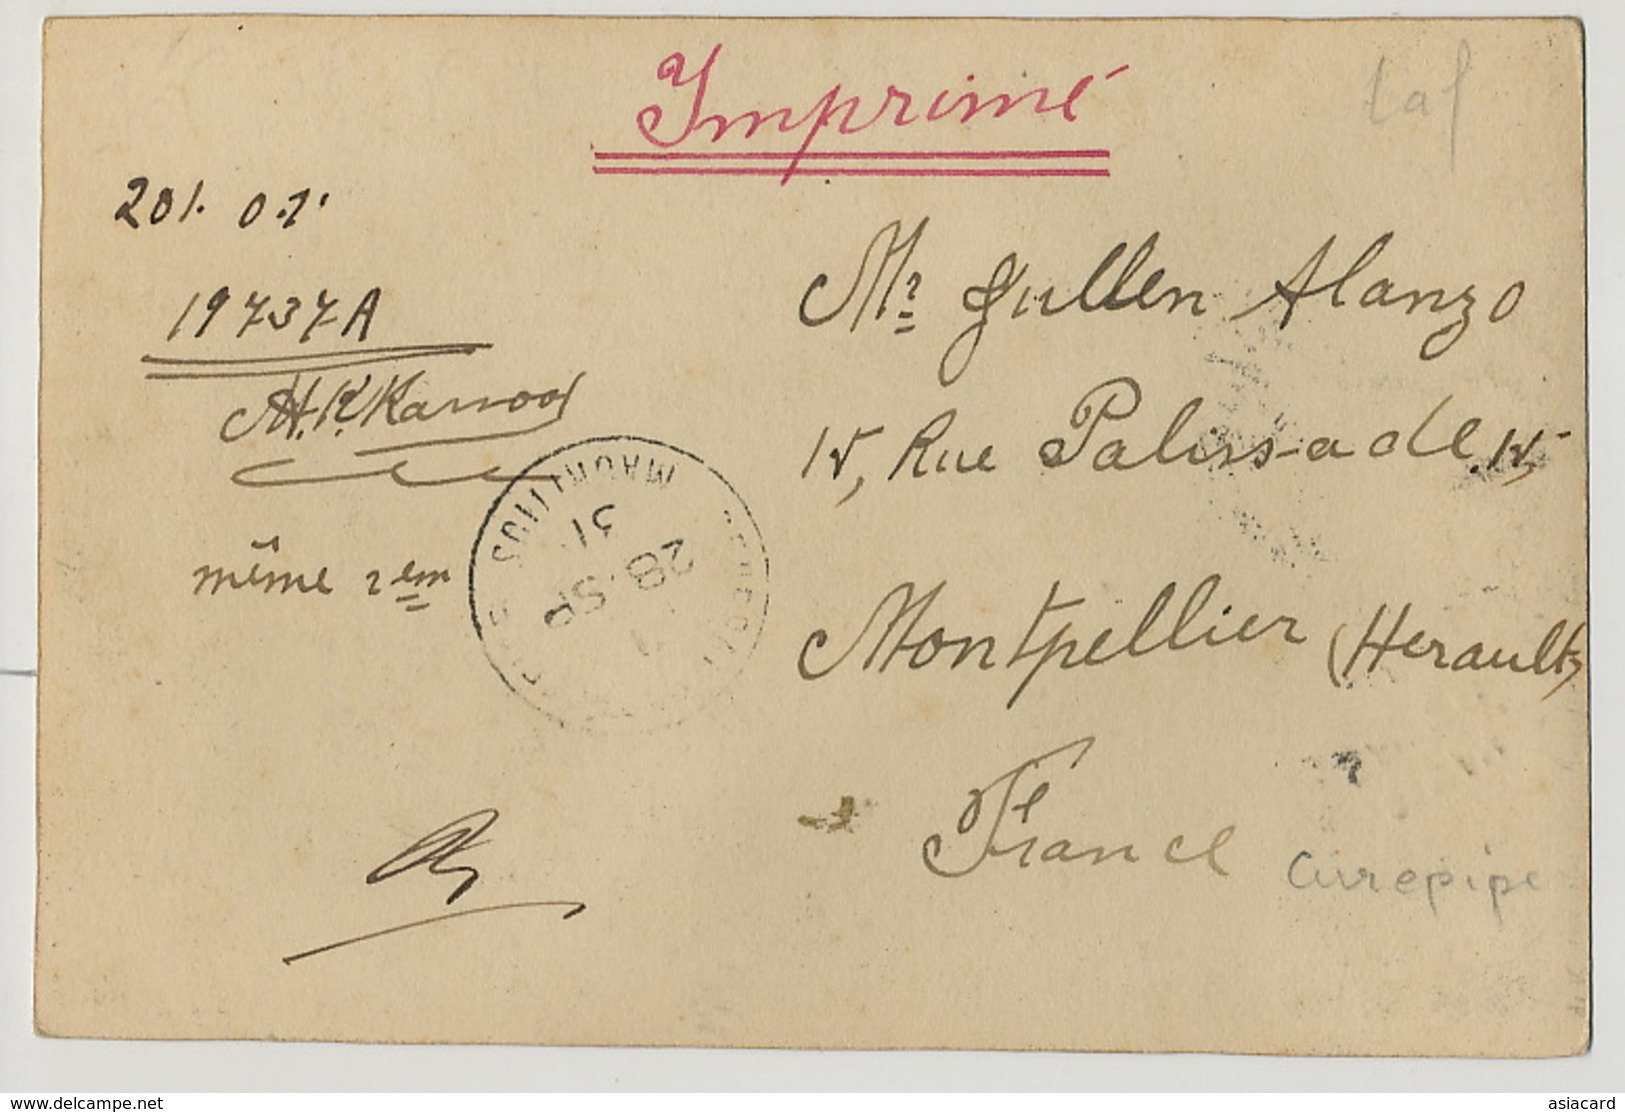 Imprimé
taf
201. 0.7.
19737A
A.H.K. Kanoo
même rem
MAURITIUS
28 SP
31
Mr Gullen Alanzo
15, Rue Palissade 15
Montpellier (Herault)
France
Curepipe
www.delcampe.net
asiacard